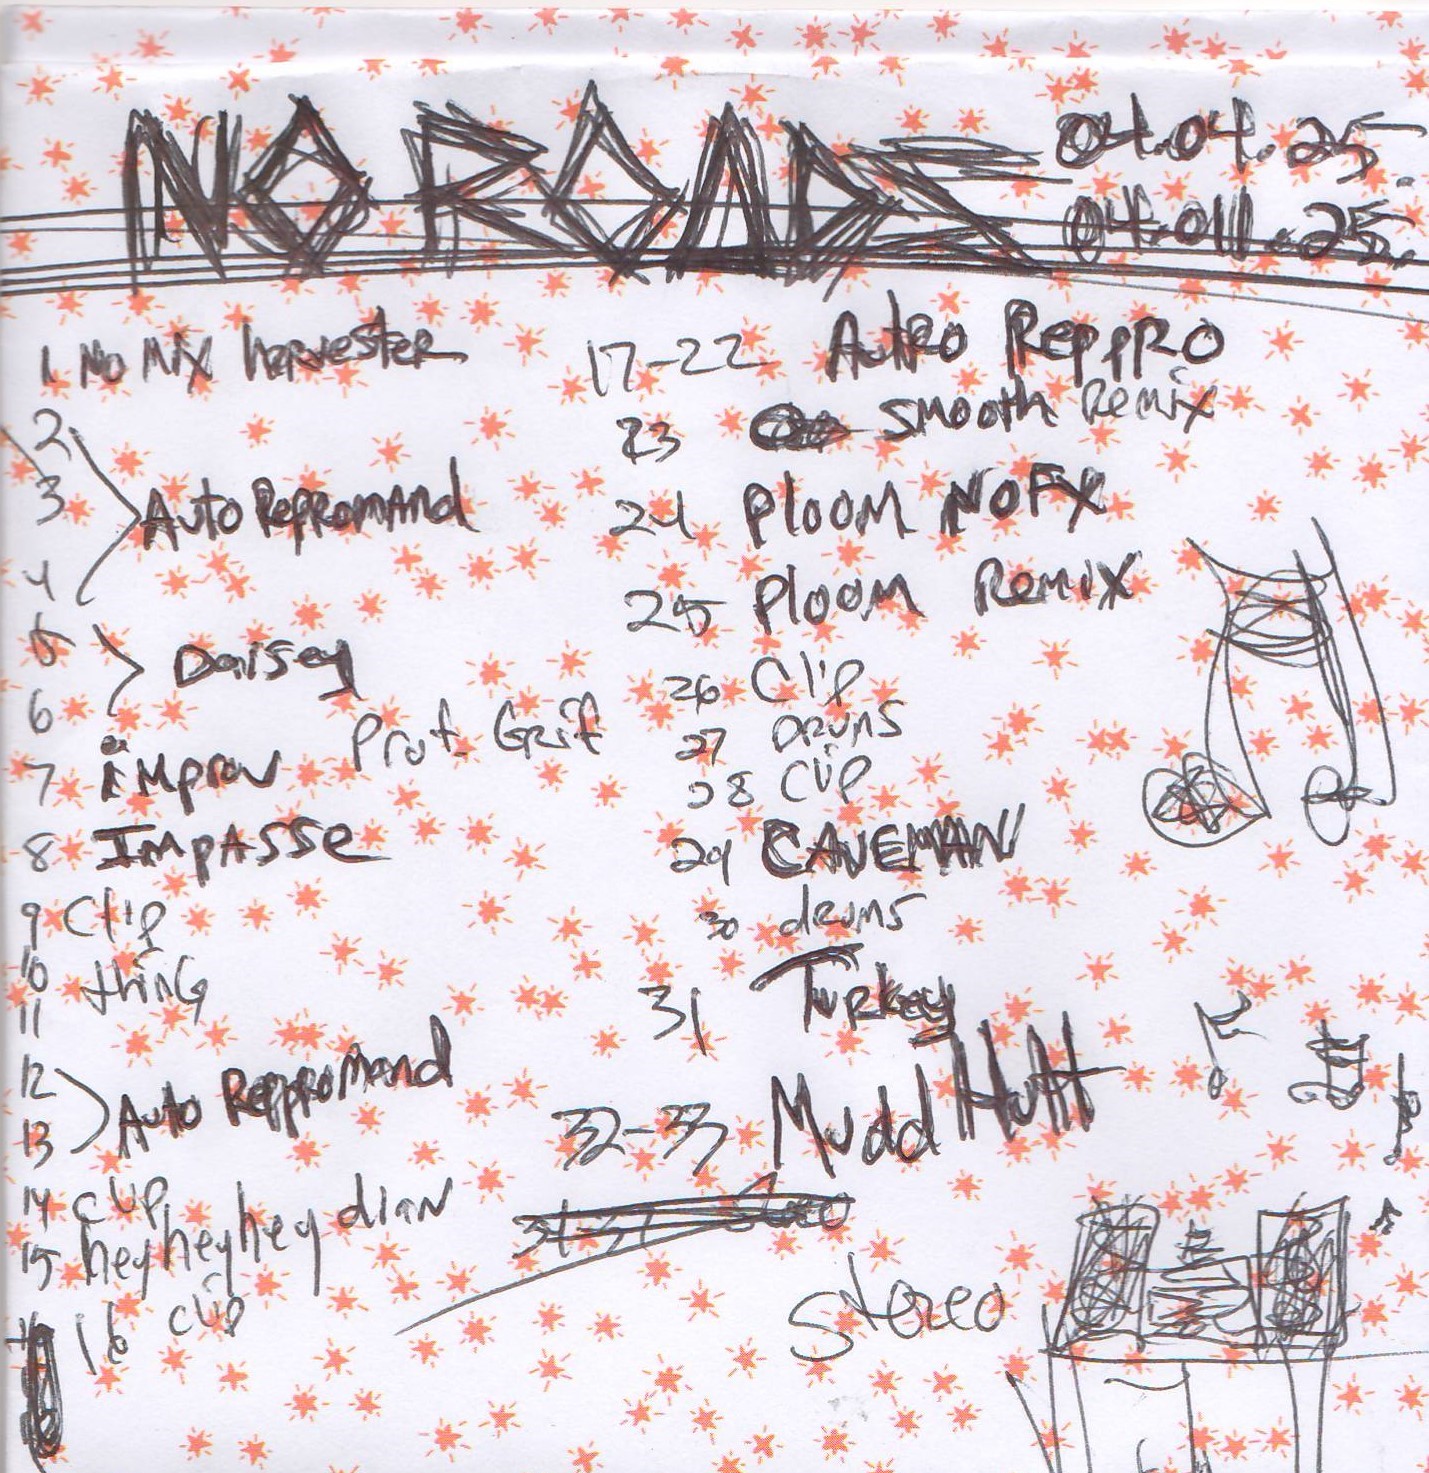 NO ROADS
04.04.25
04.011.25
1 No Mix harvester
2
3
AutoRepromand
4
5
Daisey
6
7 improv Prof. Grif
8 Impasse
9 Clip
10 thing
11
12
Auto Reppromand
13
14 clip
15 heyheyhey dian
16 clip
17-22 Autro Repppro
23 smooth remix
24 Ploom NOFX
25 Ploom Remix
26 Clip
27 Drums
28 Clip
29 CAVEMAN
30 drums
31 Turkey
32-33 Mudd Hutt
Stereo